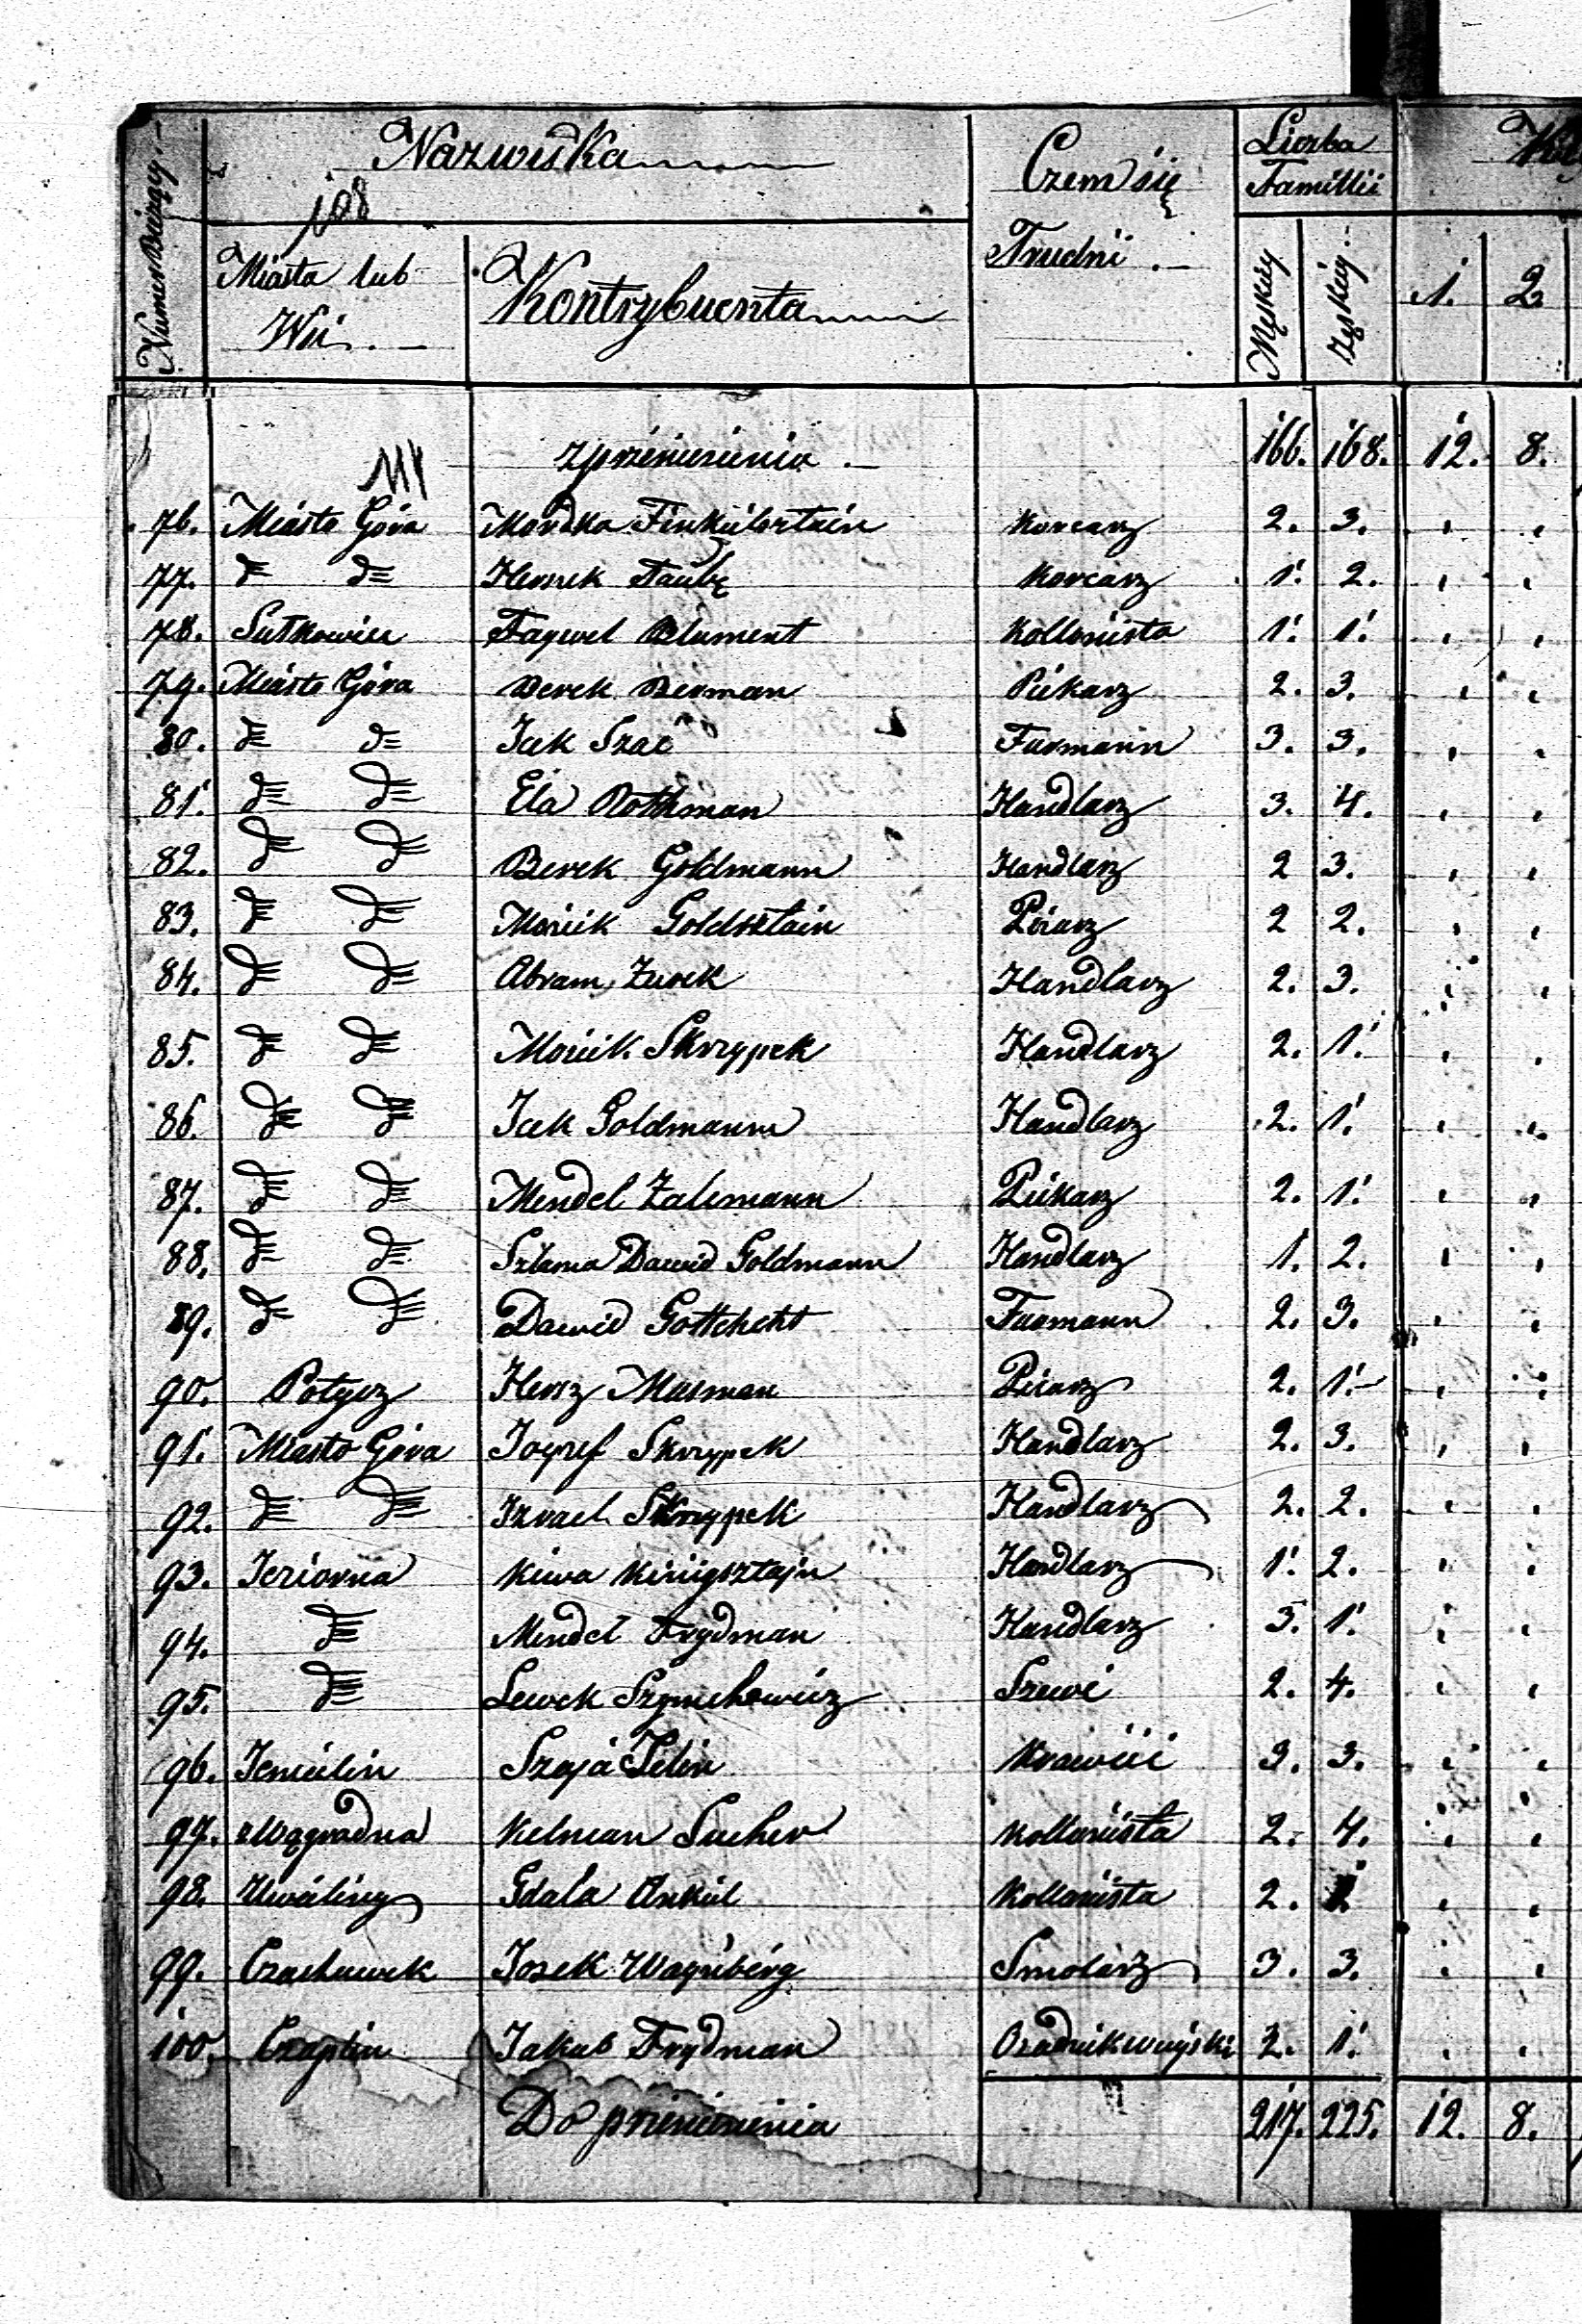 Numer Bieżący
Nazwiska
108
Czem się
Trudni
Liczba
Familii
Miasta lub
Wsi
Kontrybuenta
Męskiéy
Żęńskiéy
1. 2
z przeniesienia 166. 168. 12. 8.
76. Miasto Góra Mordka Finkielsztain Korcarz 2. 3.
77. dº dº Hersek Taubę Korcarz 1. 2.
78. Sułkowice Faywel Blument Kollonista 1. 1.
79. Miasto Góra Berek Berman Piekarz 2. 3.
80. dº dº Icek Szac Furmann 3. 3.
81. dº dº Ela Rothman Handlarz 3. 4.
82. dº dº Berek Goldmann Handlarz 2 3.
83. dº dº Moszek Goldsztain 2 2.
84. dº dº Abram Zurek Handlarz 2. 3.
85. dº dº Moszek Skrzypek Handlarz 2. 1.
86. dº dº Icek Goldmann Handlarz 2. 1.
87. dº dº Mendel Zalcmann Piekarz 2. 1.
88. dº dº Szlama Dawid Goldmann Handlarz 1. 2.
89. dº dº Dawid Furmann 2. 3.
90. Potycz Hersz Masman 2. 1.
91. Miasto Góra Joyzef Skrzypek Handlarz 2. 3.
92. dº dº Izrael Skrzypek Handlarz 2. 2.
93. Jeziorna Kiwa Kinigsztajn Handlarz 1. 2.
94. dº Mendel Frydman Handlarz 3. 1.
95. dº Lewek Szymchowicz Szewc 2. 4.
96. Jemielin Szaja Krawiec 3. 3.
97. Wągrodna Kelman Sucher Kollonista 2. 4.
98. Gdala Ankiel Kollonista 2.
99. Czachuwek Josek Waynberg Smolarz 3. 3.
100. Czaplin Jakub Frydman Osadnik wieyski 2. 1.
Do przeniesienia 217. 225. 12. 8.